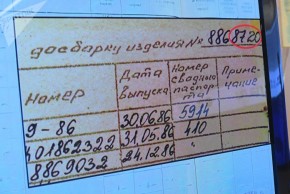 досборку изделия № 8868720
Номер Дата выпуска Номер сводный паспорта Примечание
9-86 30.06.86 5914
01862322 31.05.86 410
8869032 24.12.86 "